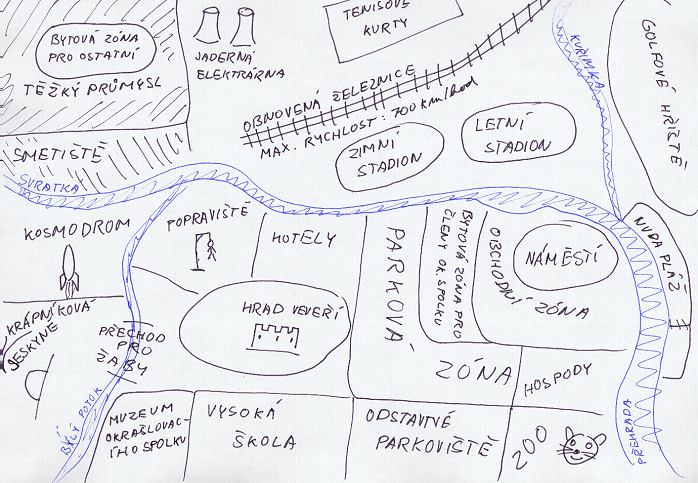 BYTOVÁ ZÓNA
PRO OSTATNÍ
TĚŽKÝ PRŮMYSL
JADERNÁ
ELEKTRÁRNA
TENISOVÉ
KURTY
OBNOVENÁ ŽELEZNICE
MAX. RYCHLOST: 700 km/hod
KUŘIMKA
GOLFOVÉ HŘIŠTĚ
SMETIŠTĚ
ZIMNÍ
STADION
LETNÍ
STADION
SVRATKA
KOSMODROM
POPRAVIŠTĚ
HOTELY
PARKOVÁ
ZÓNA
BYTOVÁ ZÓNA PRO
ČLENY OK. SPOLKU
OBCHODNÍ ZÓNA
NÁMĚSTÍ
NUDA PLÁŽ
KRÁPNÍKOVÁ
JESKYNĚ
PŘECHOD
PRO
ŽABY
HRAD VEVEŘÍ
HOSPODY
BÍLÝ POTOK
MUZEUM
OKRAŠLOVAC-
ÍHO SPOLKU
VYSOKÁ
ŠKOLA
ODSTAVNÉ
PARKOVIŠTĚ
ZOO
PŘEHRADA